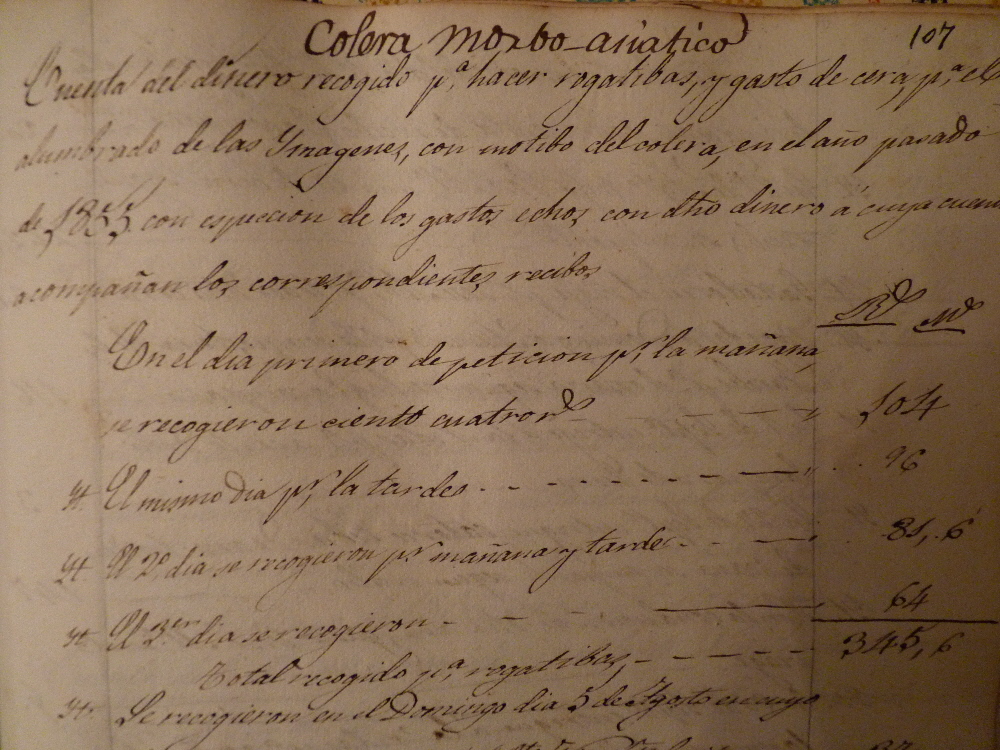 Colera morbo-asiatico
107
Cuenta del dinero recogido pª hacer rogatibas, y gasto de cera, pª el
alumbrado de las Ymagenes, con motibo del colera, en el año pasado
de 1855, con espresion de los gastos echos con dho dinero á cuya cuen
acompañan los correspondientes recibos
Rs Ms
En el dia primero de peticion pr la mañana,
se recogieron ciento cuatro rs 104
Yt. El mismo dia pr la tarde 96
Yt El 2º dia se recogieron pr mañana y tarde 81, 6
Yt El 3er dia se recogieron 64
Total recogido pª rogatibas, 345, 6
Yt. Se recogieron en el Domingo dia 5 de Agosto en cuyo